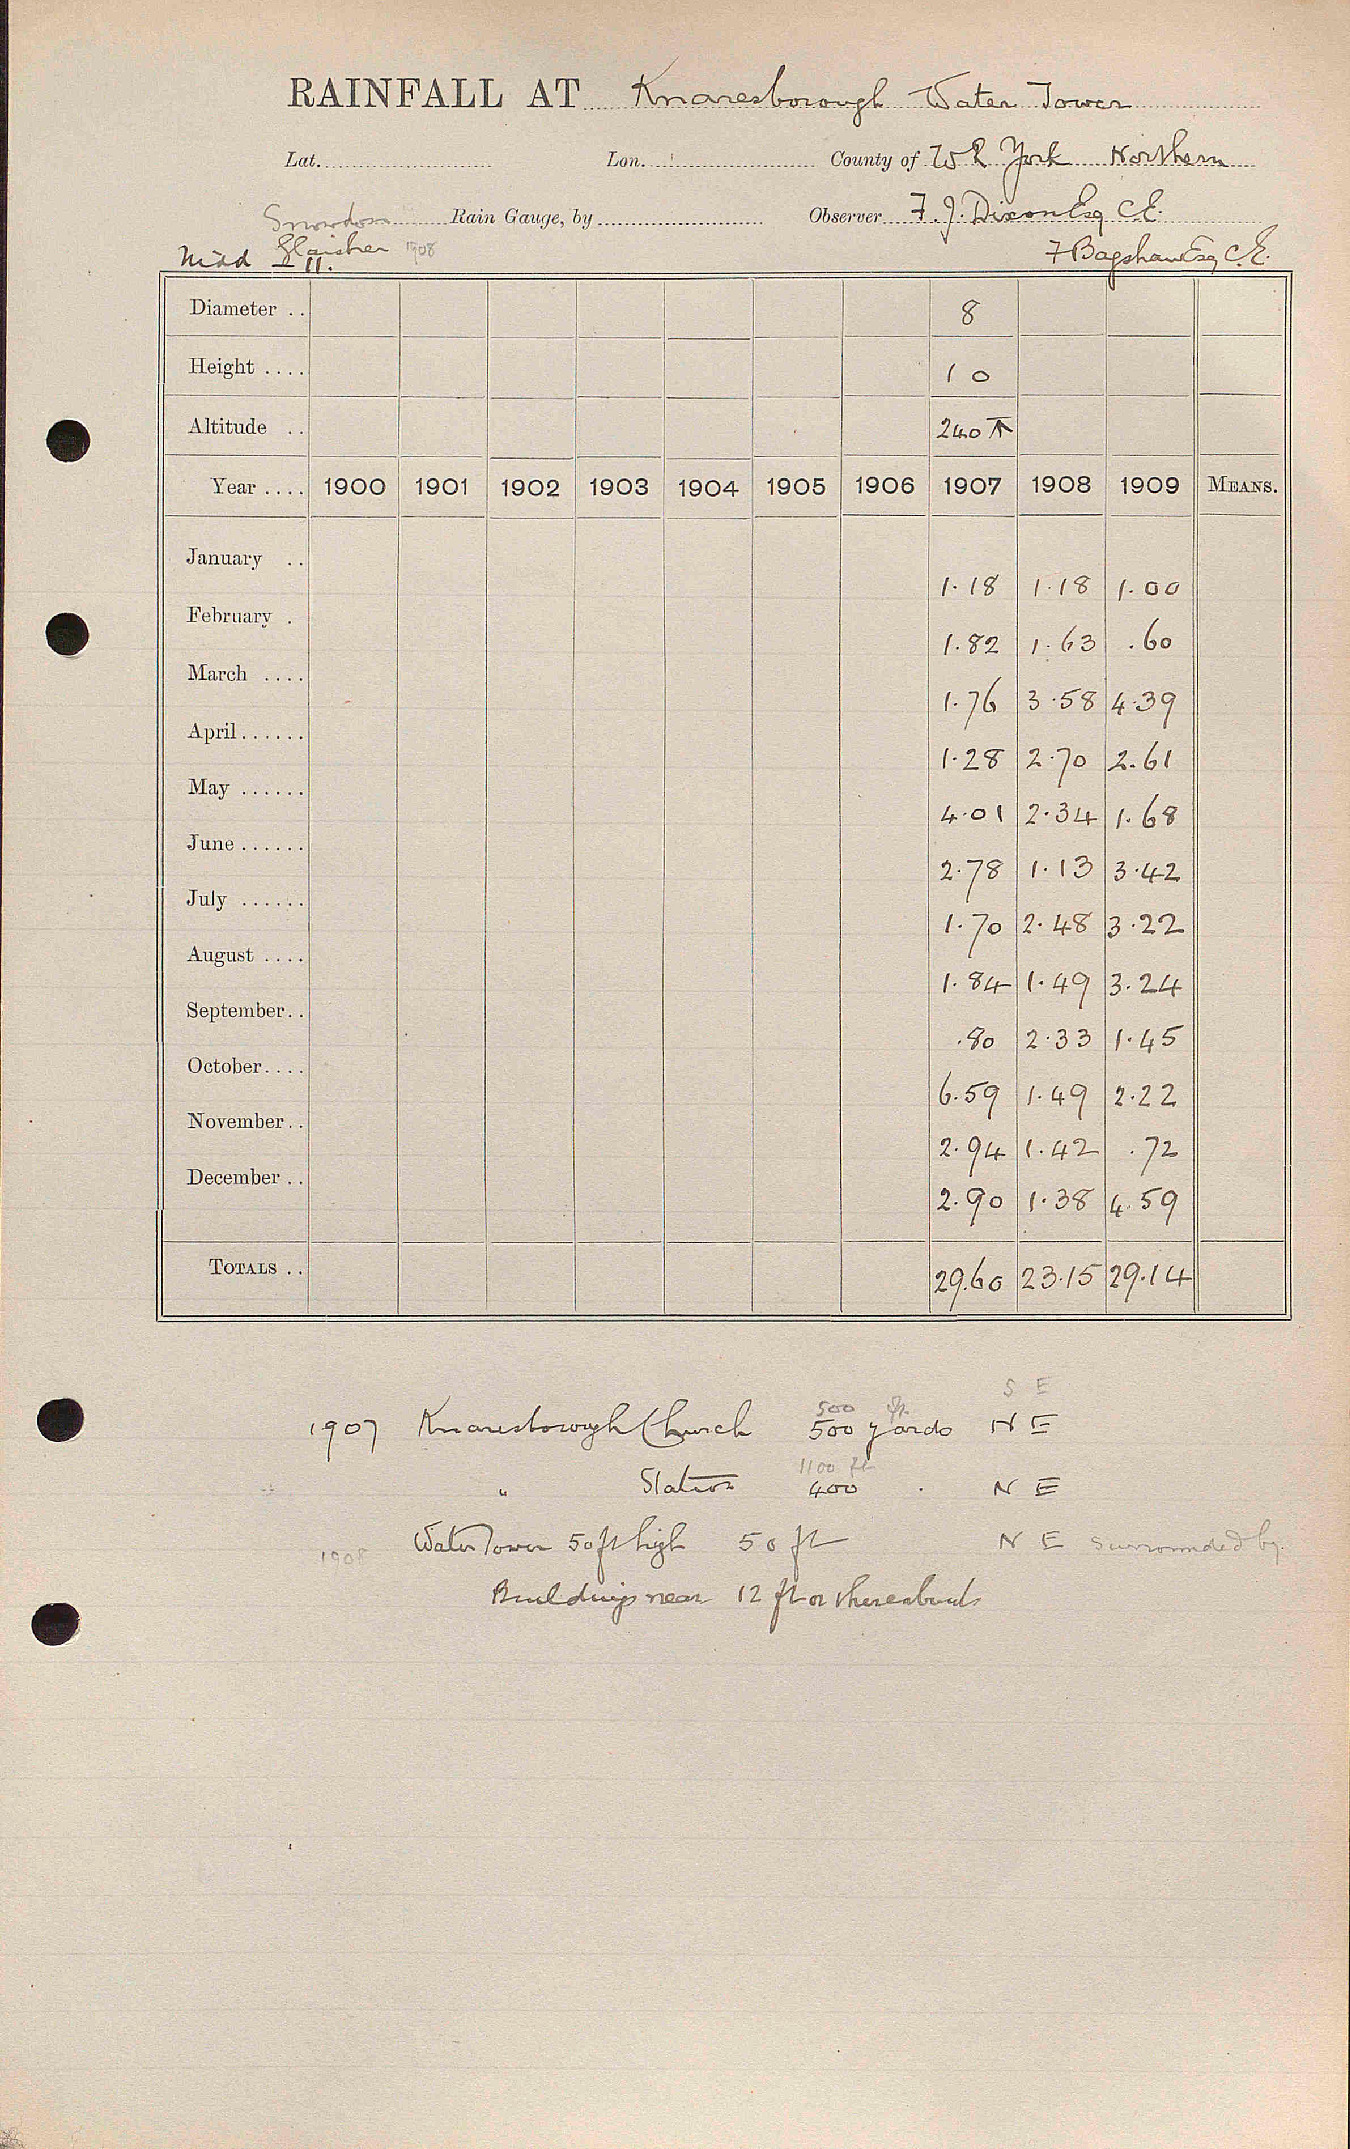 RAINFALL AT Knaresborough Water Tower
Lat. Lon. County of W R York Northern
Snowdon Rain Gauge, by Observer F. J. Dixon Esq C.E.
Nidd Glaisher 1908 F Bagshaw Esq C.E.
Diameter .. 8
Height .... 1 0
Altitude .. 240
Year .... 1900 1901 1902 1903 1904 1905 1906 1907 1908 1909 MEANS.
January .. 1.18 1.18 1.00
February . 1.82 1.63 .60
March .... 1.76 3.58 4.39
April...... 1.28 2.70 2.61
May ...... 4.01 2.34 1.68
June ...... 2.78 1.13 3.42
July ...... 1.70 2.48 3.22
August .... 1.84 1.49 3.24
September.. .80 2.33 1.45
October.... 6.59 1.49 2.22
November.. 2.94 1.42 .72
December .. 2.90 1.38 4.59
TOTALS .. 29.60 23.15 29.14
S E
500 ft
1907 Knaresborough Church 500 yards N E
1100 ft
" Station 400 . N E
1908 Water Tower 50 ft high 50 ft N E surrounded by
Buildings near 12 ft or thereabouts